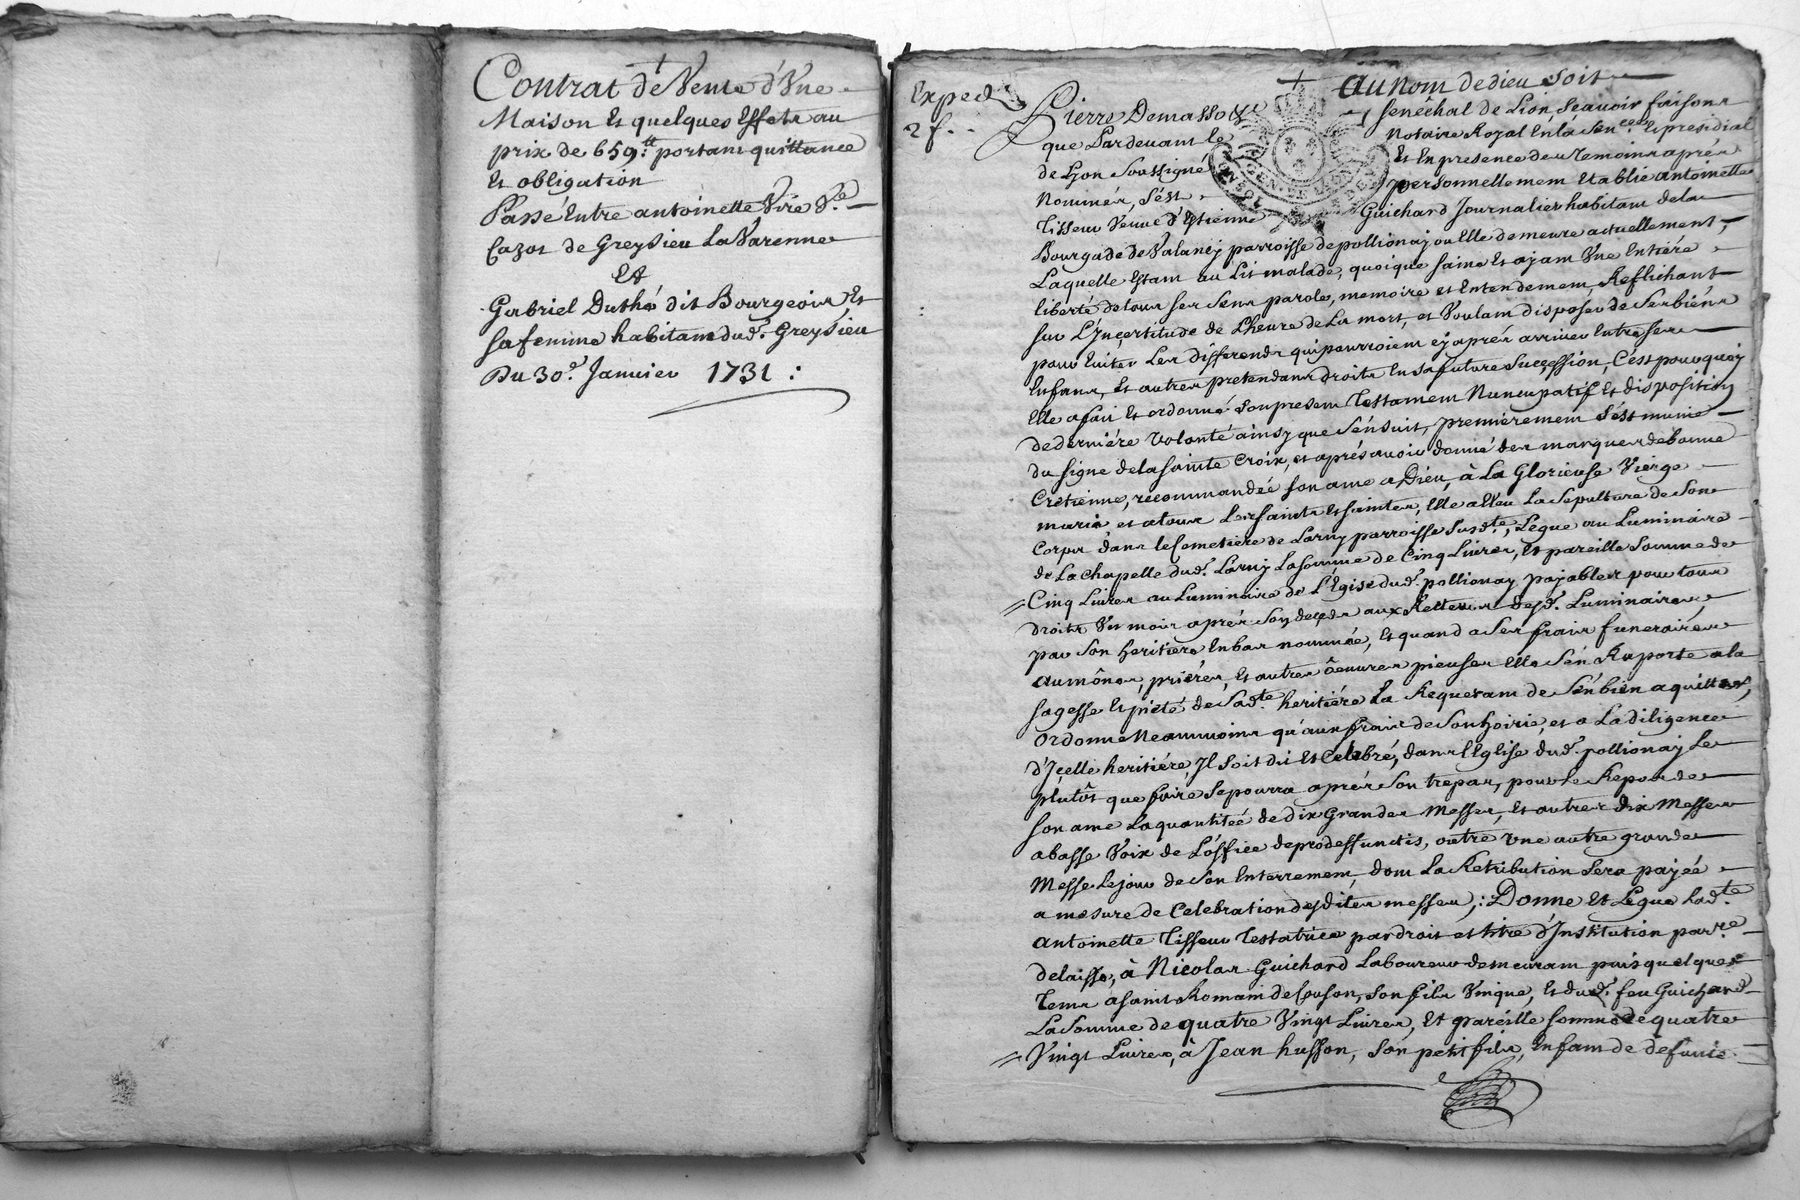 Contrat de Vente d'Vne
Maison Et quelques Effets au
prix de 659.tt portant quittance
Et obligation
Passé Entre antoinette Vire V.e
Cazot de Greysieu La Varenne
Et
Gabriel Duthé dit Bourgeois, Et
sa femme habitans dud. Greysieu
Du 30.e Janvier 1731 :
Exped
2 f.
au nom de dieu soit
Pierre Demassoye
Senéchal de Lion, Sçauoir faisons
que Pardeuant le
Notaire Royal En la Sen.cée Et presidial
de Lyon Soussigné
Et En presence des Temoins aprés
Nommés, S'est
personnellement Etablie antoinette
Tisseur Veuve d'Estienne
Guichard Journalier habitant de la
Bourgade de Valancy parroisse de pollionay ou Elle demeure actuellement,
Laquelle Estant au Lit malade, quoique saine Et ayant Vne Entiére
liberté de tous ses Sens parole, memoire et Entendement, Reflichant
sur L'Inçertitude de L'heure de La mort, et Voulant disposer de Ses biéns
pour Euiter Les differends qui pourroient cy aprés arriuer Entre ses
Enfans, Et autres pretendans droits En sa future Sucçession, C'est pourquoy
Elle a fait Et ordonné son present Testament Nuncupatif Et disposition
de derniére volonté ainsy que S'énsuit, premiérement S'est munie
du signe de la sainte Croix, et aprés auoir donné des marques de bonne
Cretienne, recommandée son ame a Dieu, à La Glorieuse Vierge
marie et a tous Les saints Et saintes, Elle a Eleu La Sepulture de Son
Corps dans le Cemetiére de Larny parroisse Susd.te, Legue au Luminaire
de La Chapelle dud. Larny La somme de Cinq Liures, Et pareille Somme de
Cinq Liures au Luminaire de L'Eglise dud. pollionay payables pour tous
droits Vn mois aprés Son deçeds aux Recteurs desd. Luminaires
par Son heritiere En bas nommée, Et quand a Ses frais funeraires
aumônes, priéres, Et autres oeuures pieuses Elle S'én Raporte a la
sagesse Et piété de Sad.te heritiére La Requerant de S'én bien aquitter,
ordonne Neanmoins qu'aux frais de Son hoirie, et a La diligence
d'Içelle heritiére, Il soit dit Et Celebré, dans l'Eglise dud. pollionay Le
plutôt que faire Se pourra aprés Son trepas, pour Le Repos de
son ame La quantitée de dix Grandes Messes, Et autres dix Messes
a basse Voix de L'office de pro deffunctis, outre vne autre grande
Messe Le jour de Son Enterrement, dont La Retribution Sera payée
a mesure de Celebration desdites messes; Donne Et Legue Lad.te
antoinette Tisseur Testatrice par droit et titre d'Institution par.re
delaisse, à Nicolas Guichard Laboureur demeurant puis quelques
Tems a Saint Romain de Couson, Son fils Vnique, Et dud. feu Guichard
La Somme de quatre Vingt Liures, Et paréille somme de quatre
Vingt Liures, à Jean husson, Son petit fils, Enfant de defunte